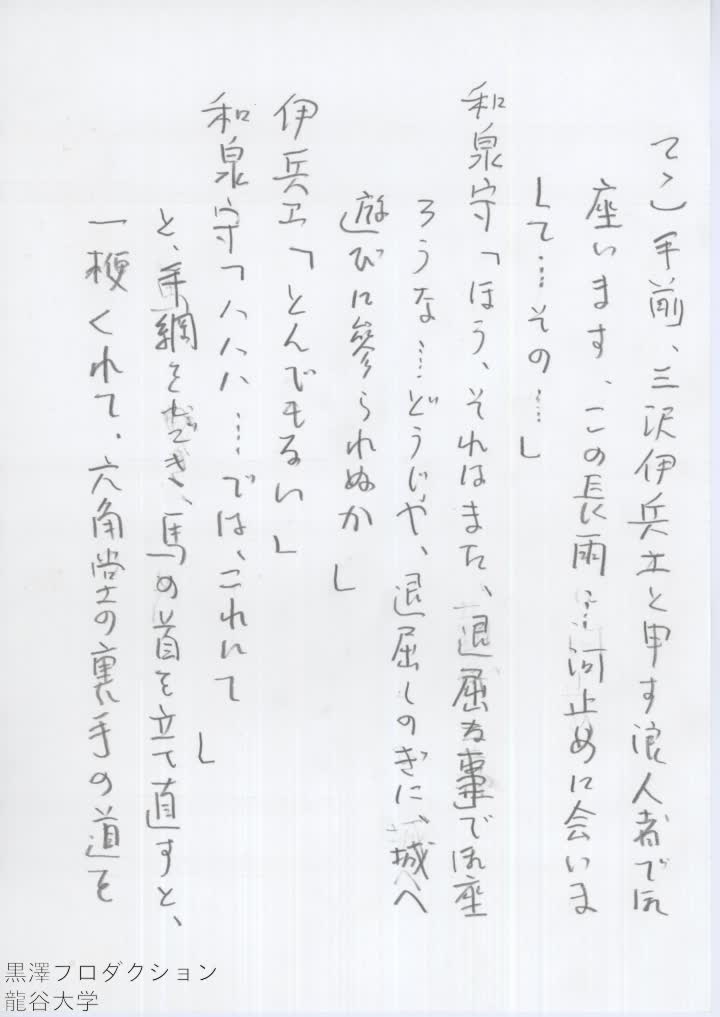 てゝ」手前、三沢伊兵ヱと申す浪人者で御
座います、この長雨…河止めに会いま
して…その…」
和泉守「ほう、それはまた、退屈な事で御座
ろうな…どうじや、退屈しのぎに、城へ
遊びに參られぬか」
伊兵ヱ「とんでもない」
和泉守「ハハハ…では、これにて」
と、手綱をさばき、馬の首を立て直すと、
一鞭くれて、六角堂の裏手の道を
黒澤プロダクション
龍谷大学